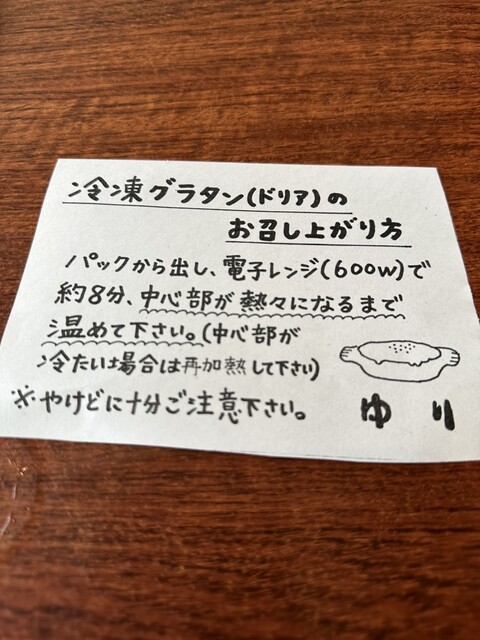 冷凍グラタン(ドリア)の
お召し上がり方
パックから出し、電子レンジ(600W)で
約8分、中心部が熱々になるまで
温めて下さい。(中心部が
冷たい場合は再加熱して下さい)
※やけどに十分ご注意下さい。
ゆり